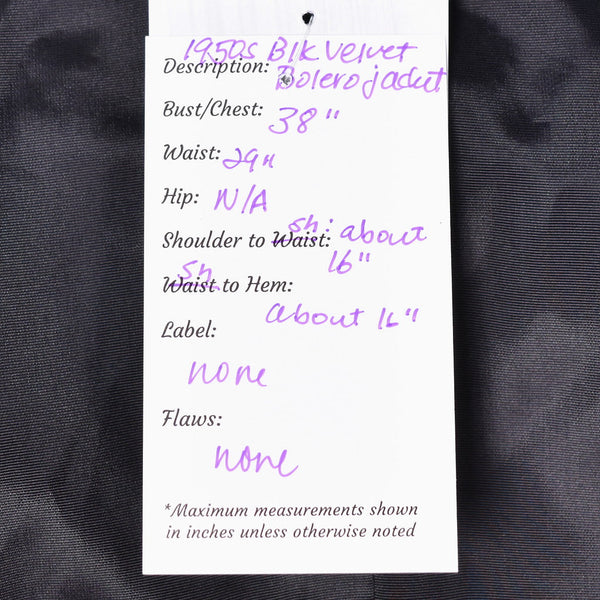 1950s Blk Velvet
Description: Bolero jacket
Bust/Chest: 38"
Waist: 29"
Hip: N/A
sh:
Shoulder to Waist: about
16"
sh
Waist to Hem:
about 16"
Label:
none
Flaws:
none
*Maximum measurements shown
in inches unless otherwise noted